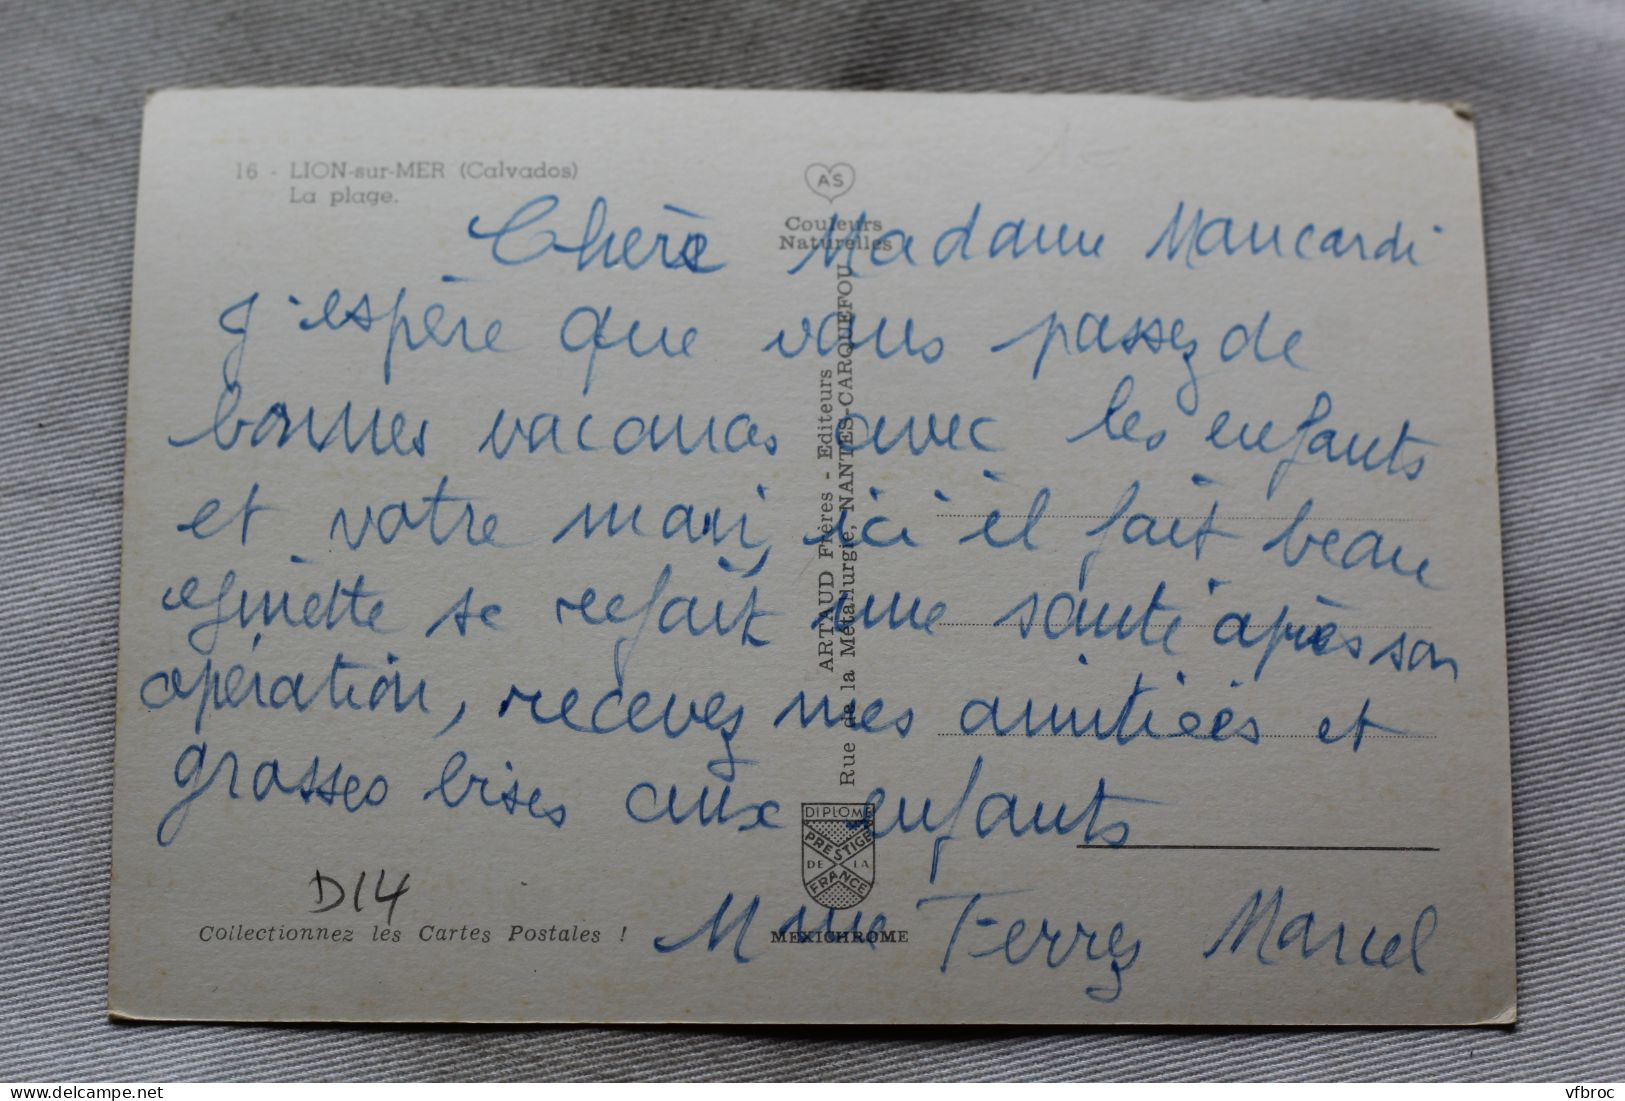 16 - LION-sur-MER (Calvados)
La plage.
AS
Couleurs
Naturelles
Chère Madame Mancardi
J'espère que vous passez de
bonnes vacances avec les enfants
et votre mari, ici il fait beau
ginette se refait une santé après son
opération, recevez mes amitiées et
grosses bises aux enfants
Mme Ferrez Marcel
ARTAUD Frères - Editeurs
Rue de la Métallurgie, NANTES-CARQUEFOU
DIPLOME
PRESTIGE
DE LA
FRANCE
MEXICHROME
D14
Collectionnez les Cartes Postales !
vfbroc